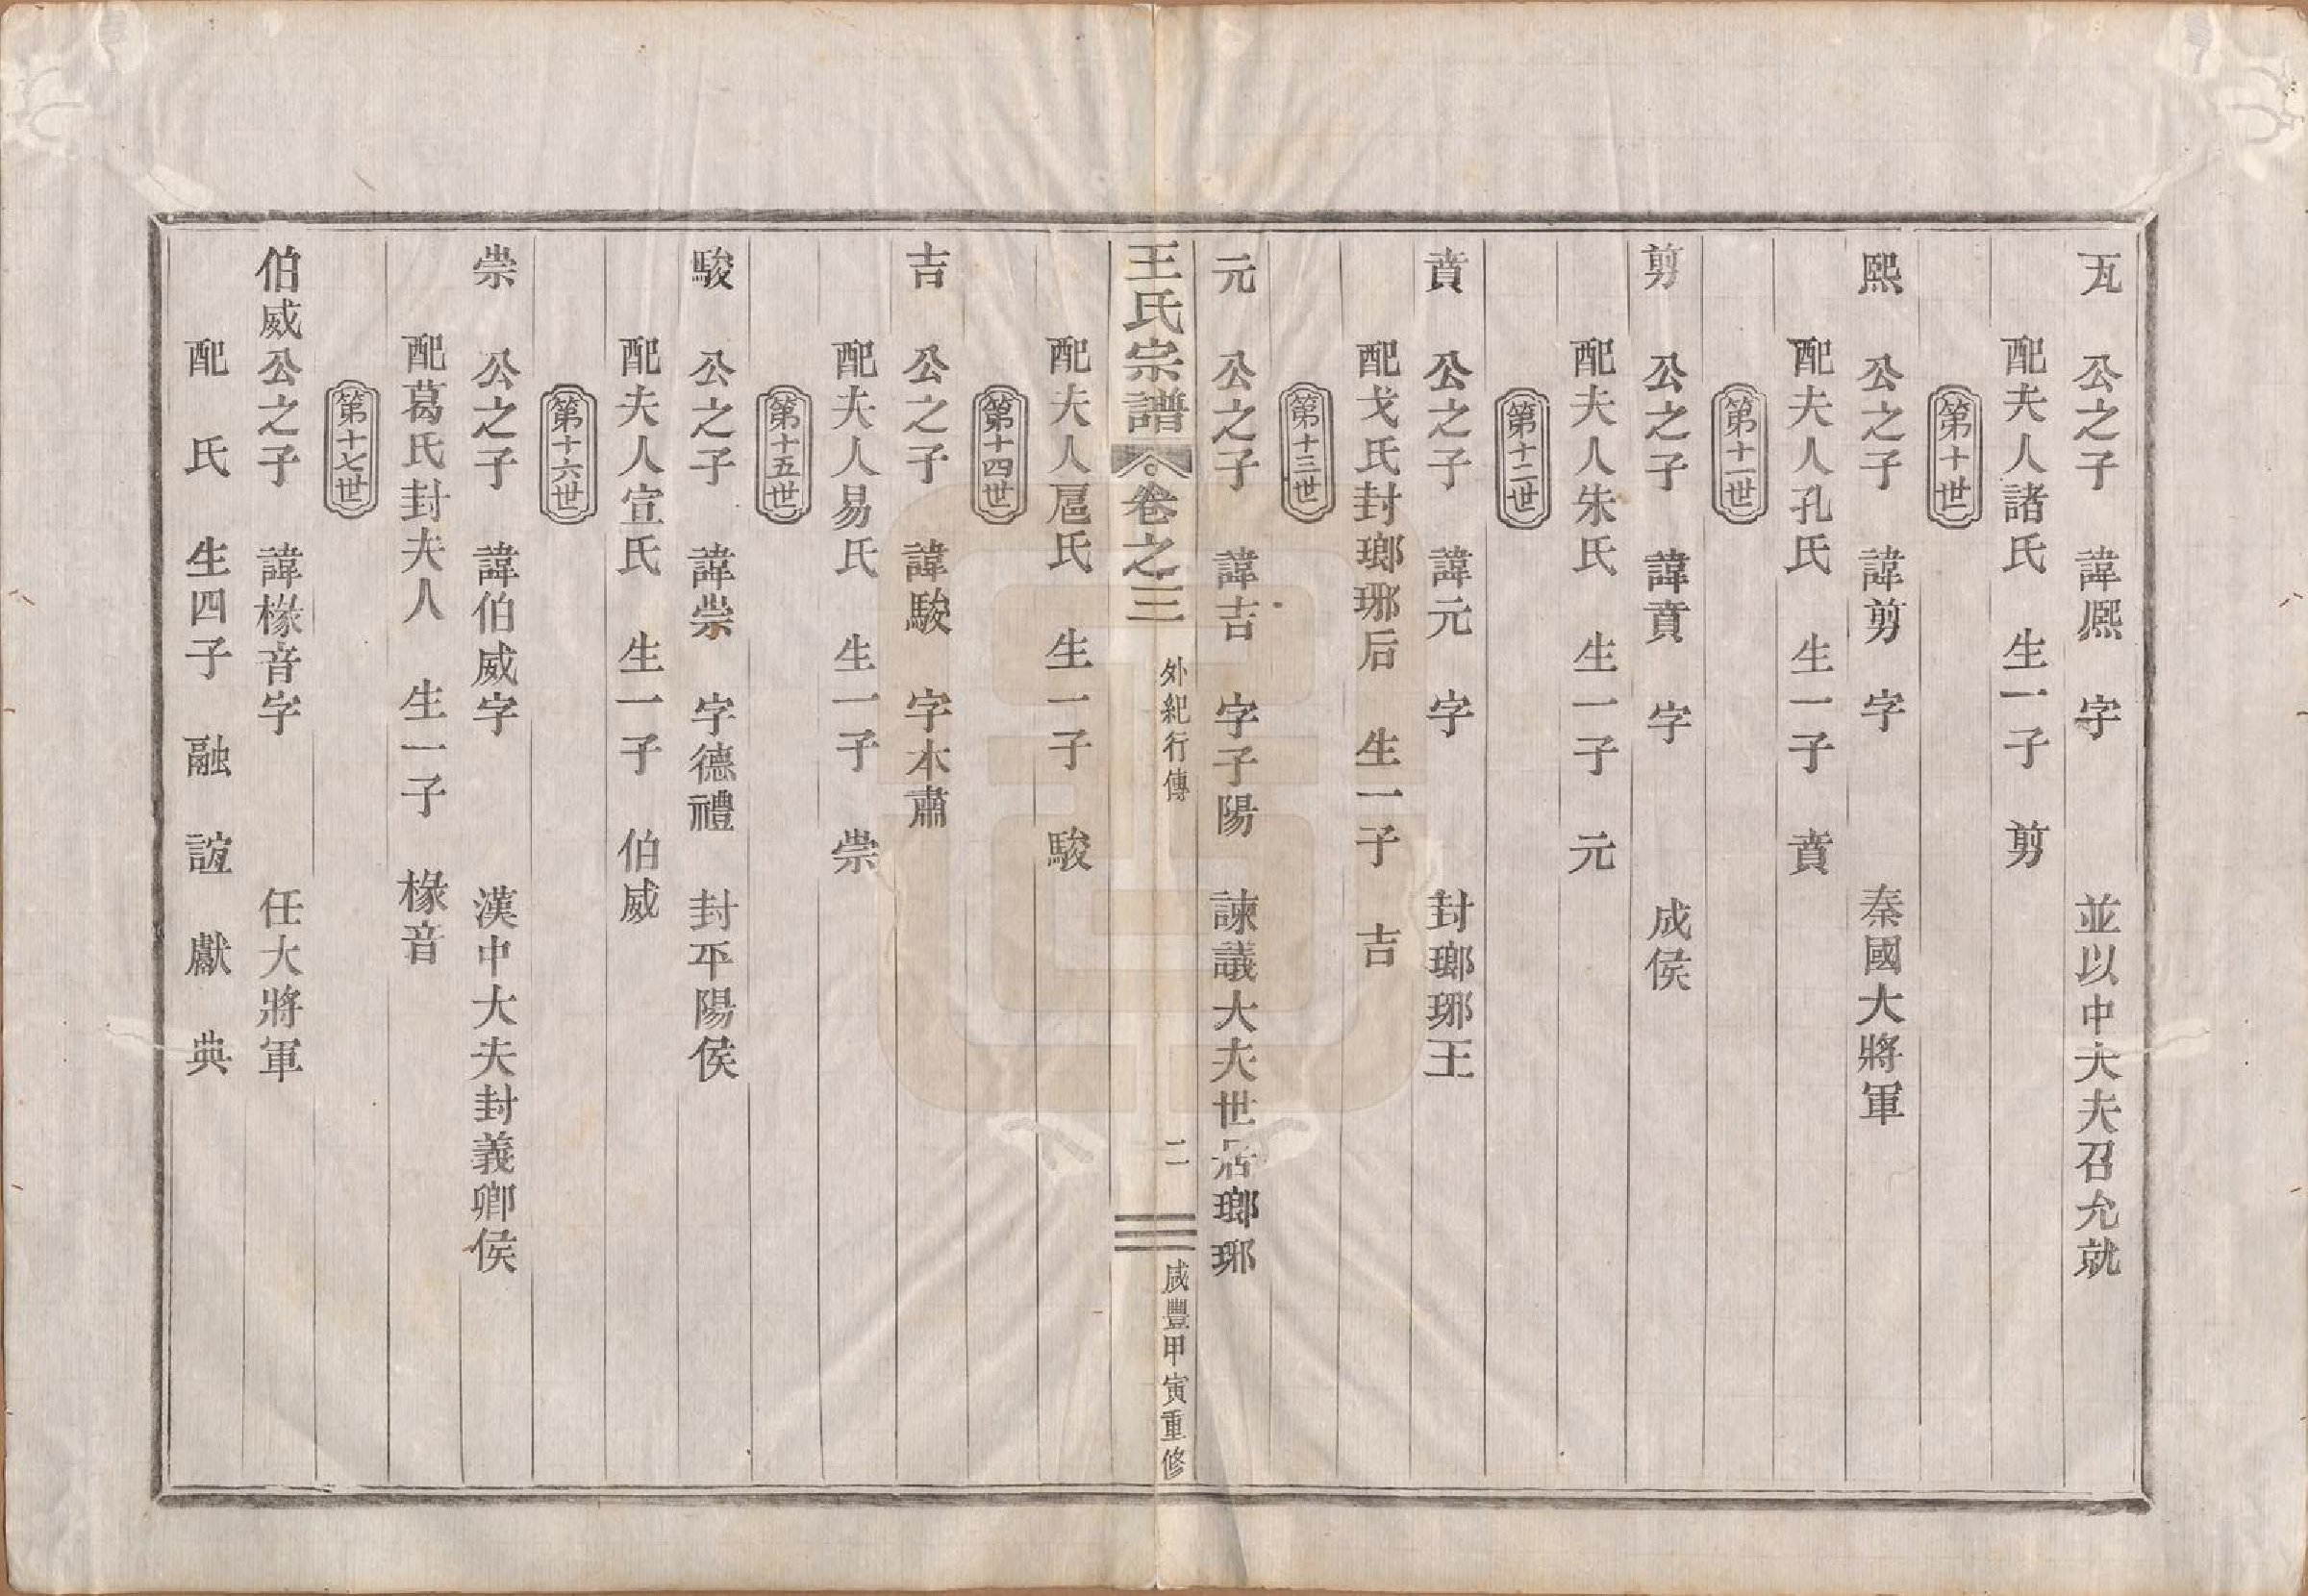 瓦　公之子　諱熙　字　並以中大夫召允就
配夫人諸氏　生一子　剪
第十世
熙　公之子　諱剪　字　秦國大將軍
配夫人孔氏　生一子　賁
第十一世
剪　公之子　諱賁　字　成侯
配夫人朱氏　生一子　元
第十二世
賁　公之子　諱元　字　封瑯琊王
配戈氏封瑯琊后　生一子　吉
第十三世
元　公之子　諱吉　字子陽　諫議大夫世居瑯琊
王氏宗譜　卷之三　外紀行傳　二　咸豐甲寅重修
配夫人扈氏　生一子　駿
第十四世
吉　公之子　諱駿　字本肅
配夫人易氏　生一子　崇
第十五世
駿　公之子　諱崇　字德禮　封平陽侯
配夫人宣氏　生一子　伯威
第十六世
崇　公之子　諱伯威字　漢中大夫封義鄉侯
配葛氏封夫人　生一子　椽音
第十七世
伯威公之子　諱椽音字　任大將軍
配　氏　生四子　融　誼　獻　典